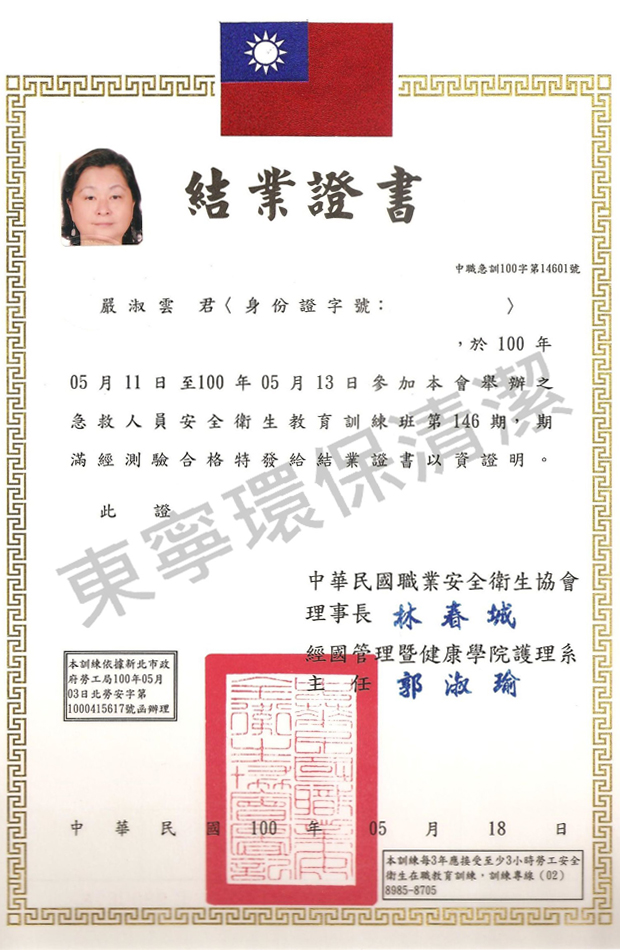 結業證書
中職急訓100字第14601號
嚴淑雲 君〈身份證字號: 〉
,於100年
05月11日至100年05月13日參加本會舉辦之
急救人員安全衛生教育訓練班第146期,期
滿經測驗合格特發給結業證書以資證明。
此證
東寧環保清潔
中華民國職業安全衛生協會
理事長 林春城
經國管理暨健康學院護理系
主任 郭淑瑜
本訓練依據新北市政
府勞工局100年05月
03日北勞安字第
1000415617號函辦理
中華民國100年05月18日
本訓練每3年應接受至少3小時勞工安全
衛生在職教育訓練,訓練專線(02)
8985-8705